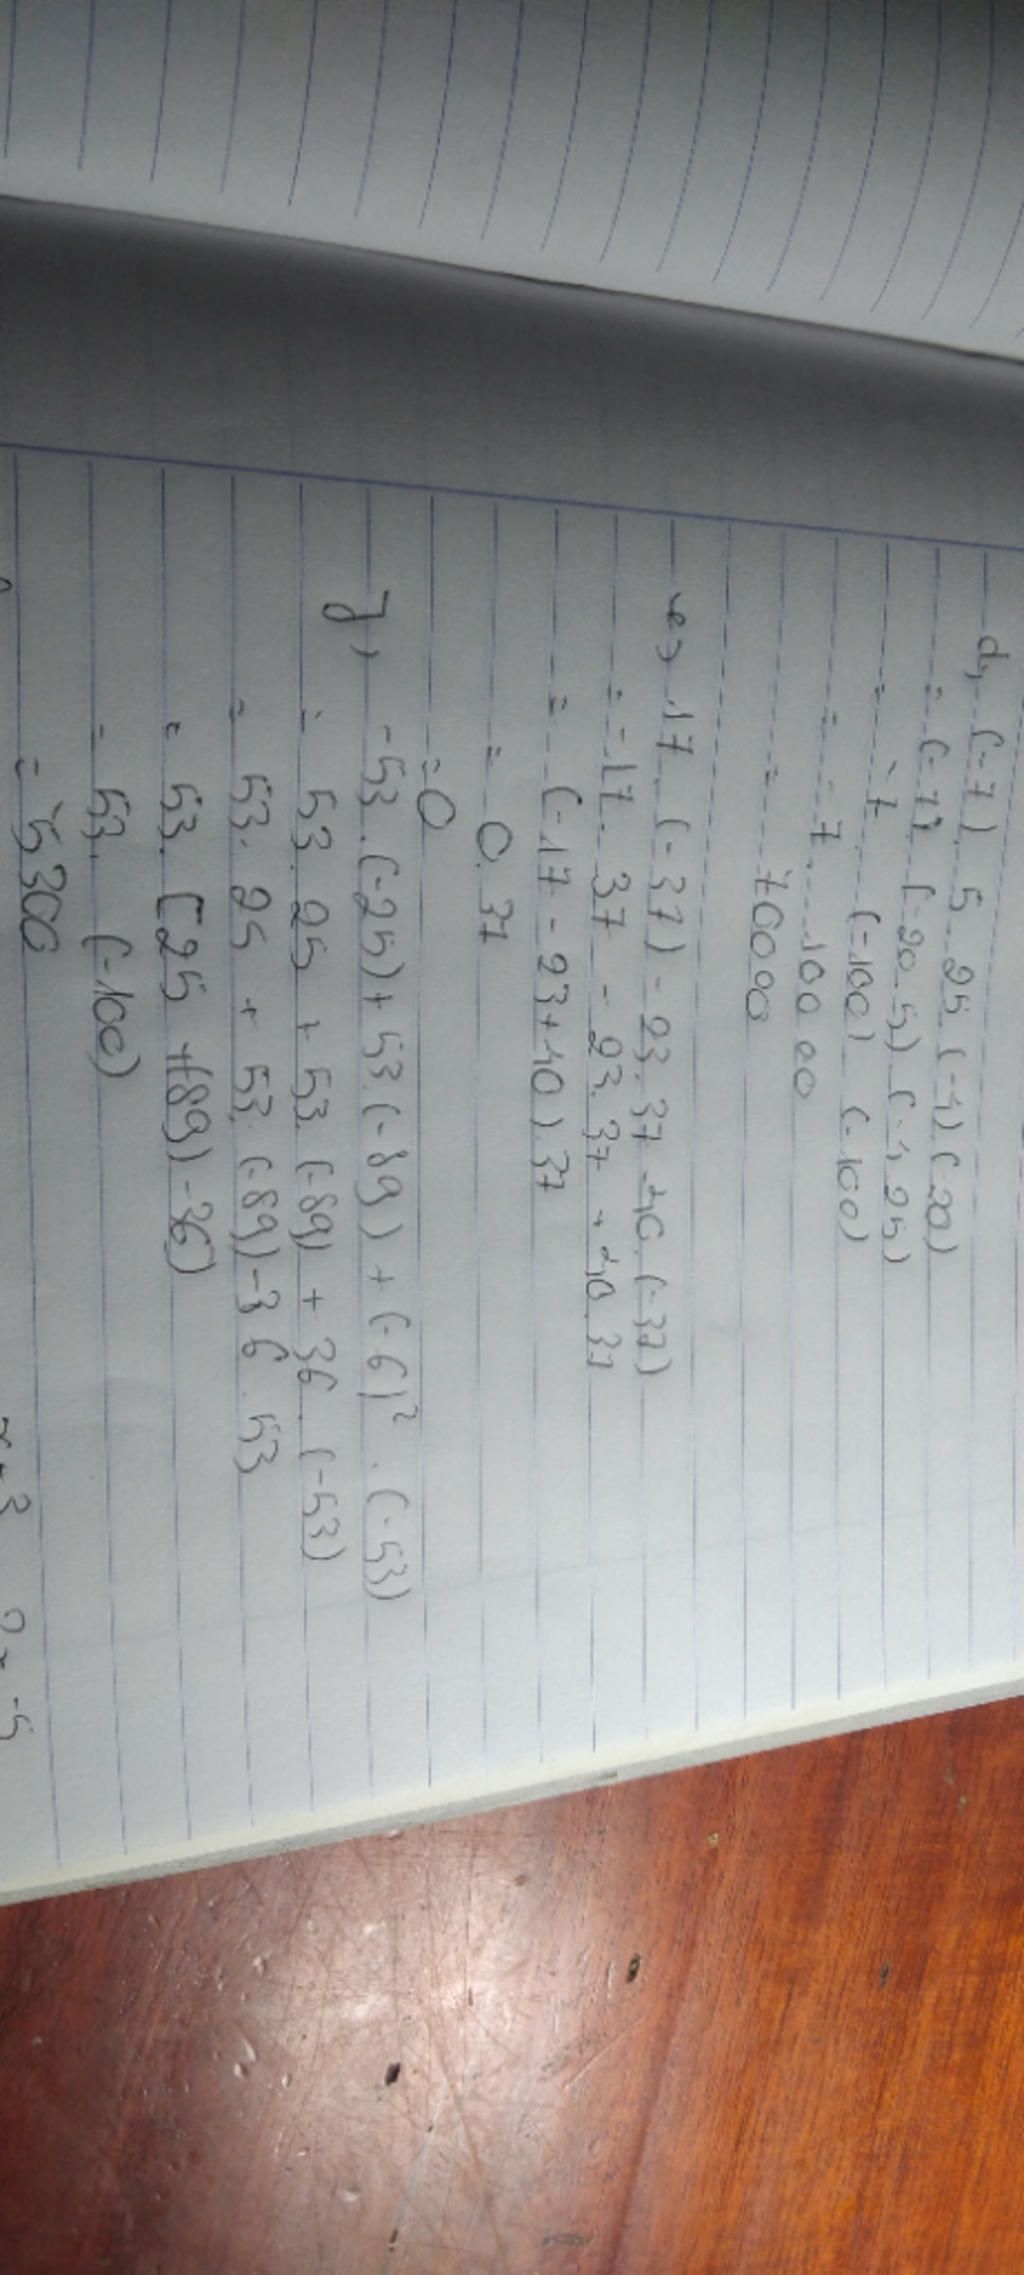 d, (-7). 5. 25 (-4) (-20)
= (-7) (-20.5) (-4.25)
= -7 (-100) (-100)
= -7. 100 00
= -70000
e, 17. (-37) - 23. 37 - 40. (-37)
= -17. 37 - 23. 37 + 40.37
= (-17 - 23+40).37
= 0. 37
= 0
g, -53.(-25)+53.(-89) + (-6)². (-53)
= 53. 25 + 53. (-89) + 36. (-53)
= 53. 25 + 53. (-89) - 36. 53
= 53. [25 +(89) -36)
= 53. (-100)
= -5300